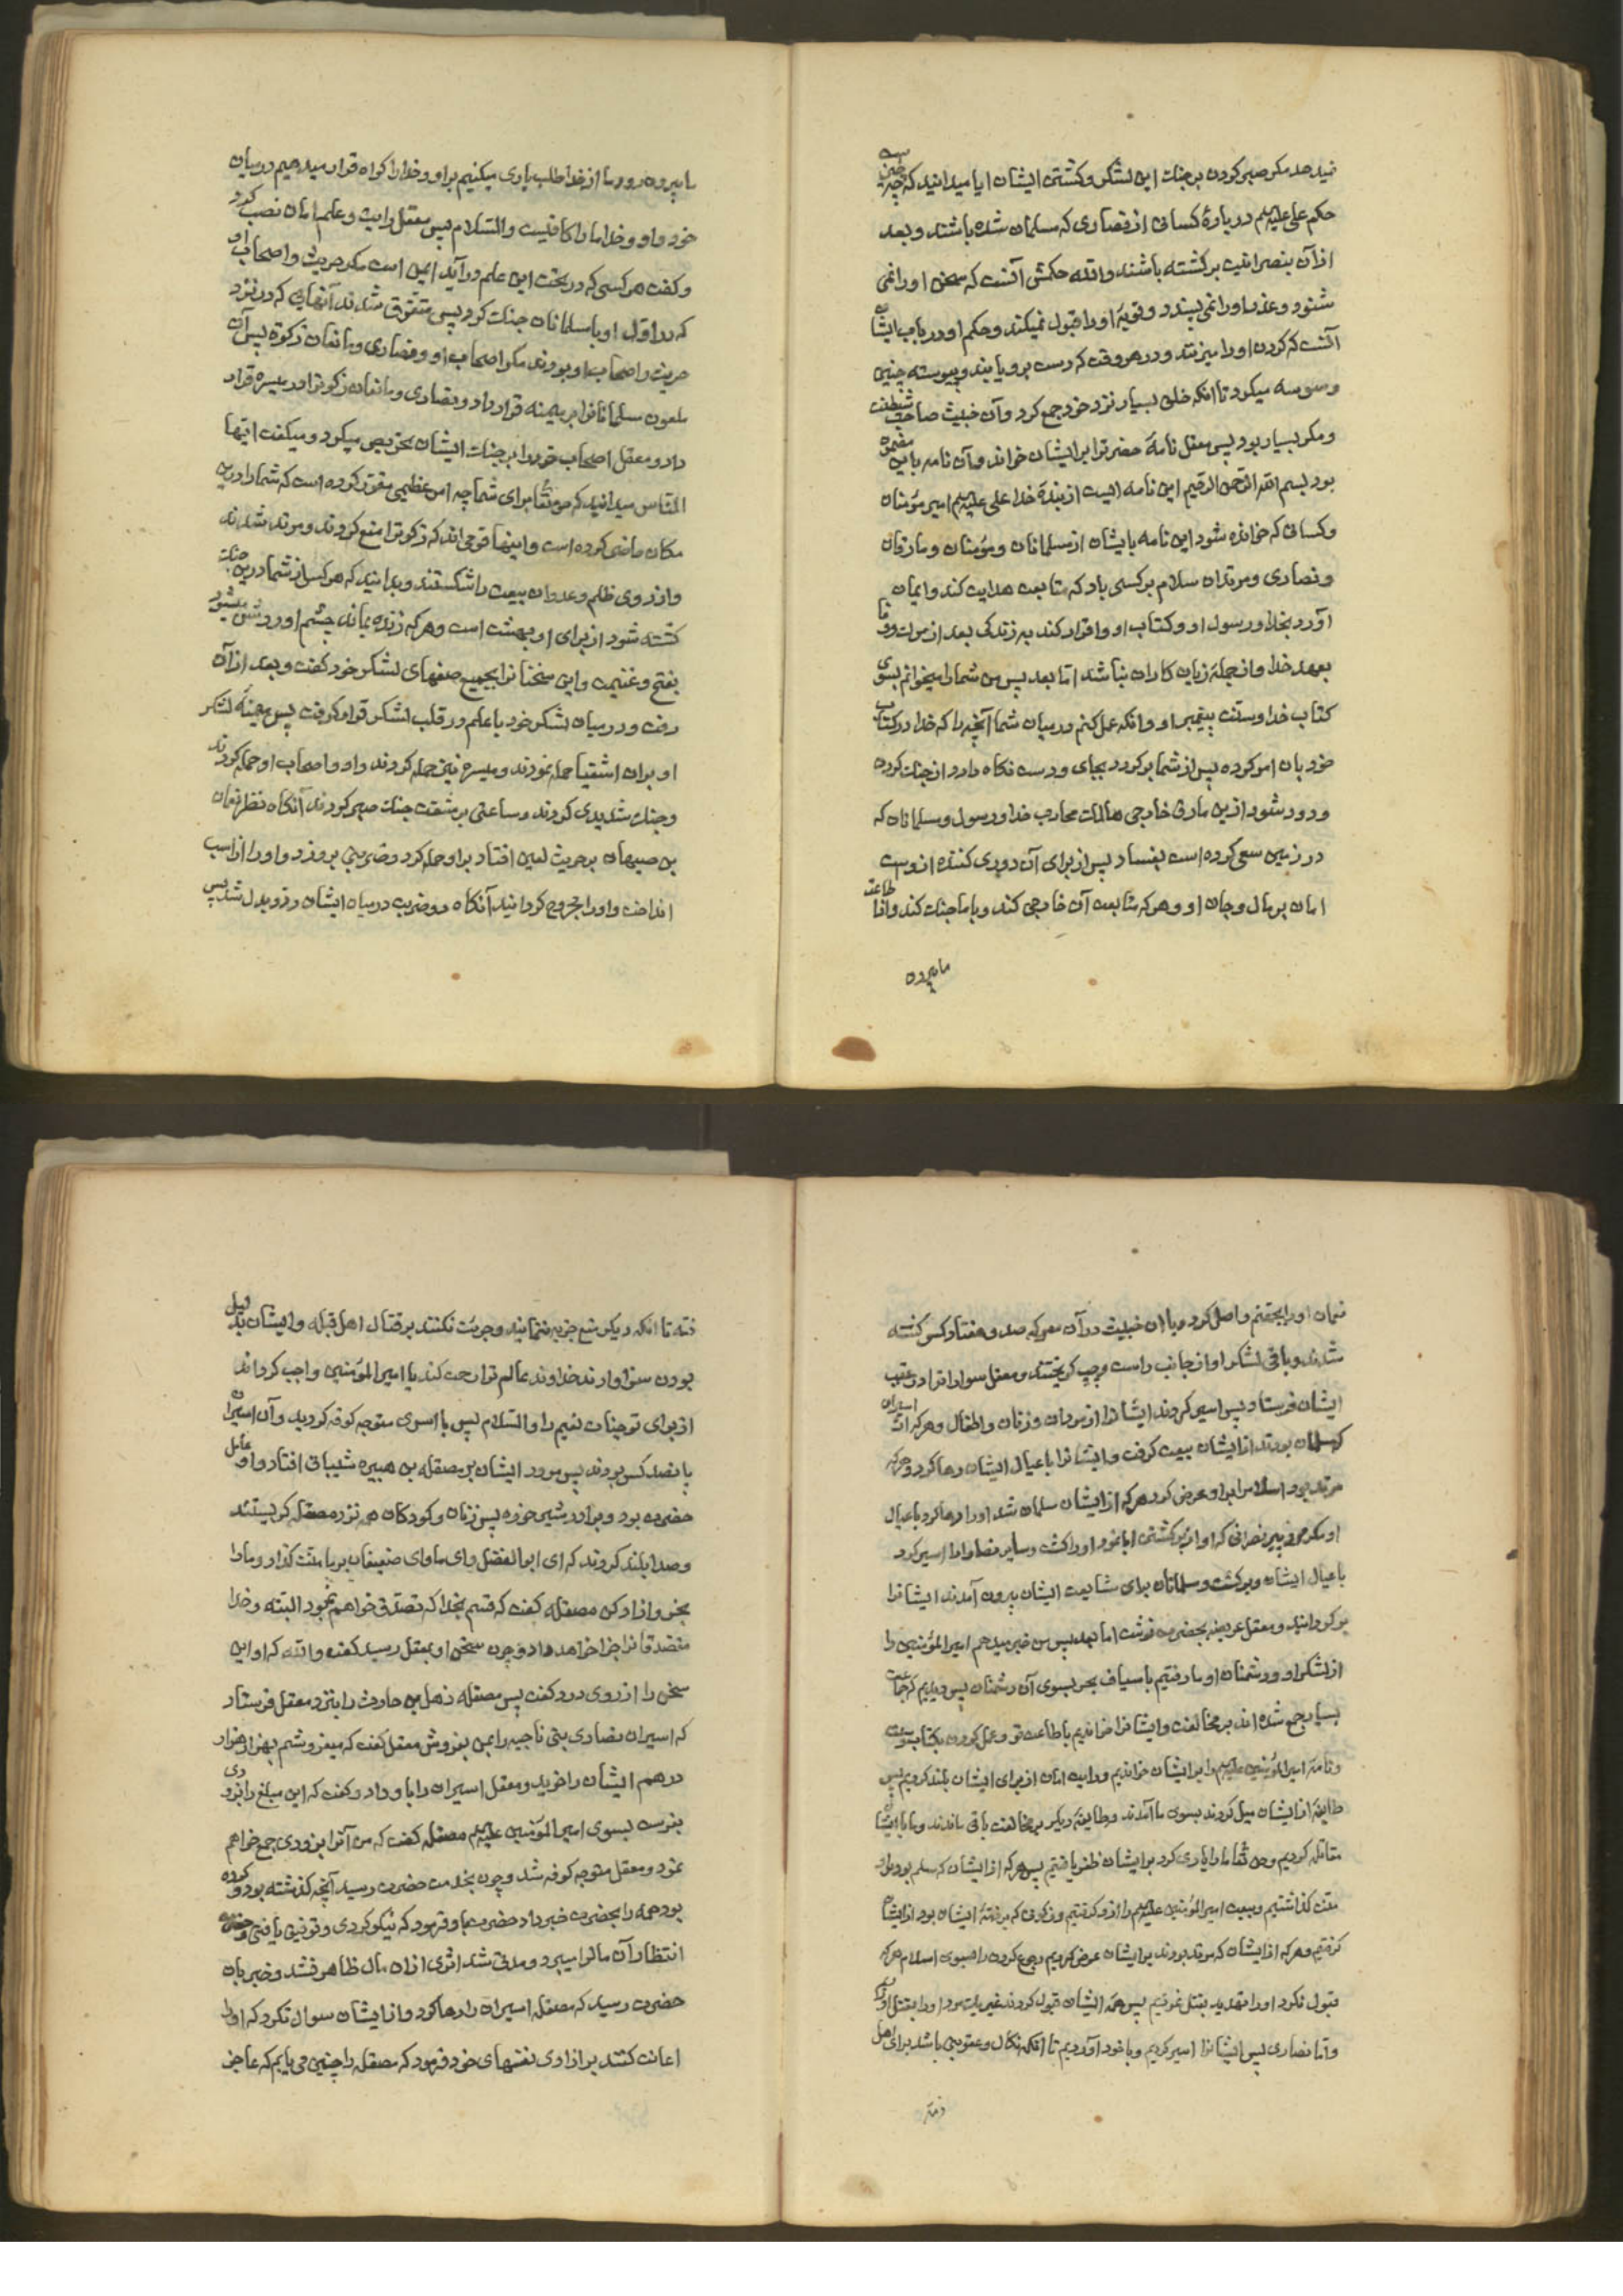 نمیدهد مکر صبر کردن بر جنک این لشکر و کشتن ایشان ایا میدانید که چیست
حکم علی علیه‌السلم در بارهٔ کسانی از نصاری که مسلمان شده باشند و بعد
از آن بنصرانیت برکشته باشند والله حکمش آنست که سخن او را نمی
شنود و عذر او را نمی پسندد و توبهٔ او را قبول نمیکند و حکم او در باب ایشان
آنست که کردن او را میزنند در هر وقت که دست بر او یابند و پیوسته چنین
وسوسه میکرد تا انکه خلق بسیار نزد خود جمع کرد و آن خبیث صاحب شیطنت
و مکر بسیار بود پس معقل نامهٔ حضرترا بر ایشان خواند و آن نامه باین مضمون
بود بسم الله الرحمن الرحیم این نامه ایست از بندهٔ خدا علی علیه‌السلم امیر مؤمنان
و کسانی که خوانده شود این نامه بایشان از مسلمانان و مؤمنان و مارقان
و نصاری و مرتدان سلام بر کسی باد که متابعت هدایت کند و ایمان
آورد بخدا و رسول او و کتاب او و اقرار کند به زندکی بعد از موت و وفا
بعهد خدا و از جملهٔ زیان کاران نباشد اما بعد پس من شما را میخوانم بسوی
کتاب خدا و سنت پیغمبر او و انکه عمل کنم در میان شما آنچه را که خدا در کتاب
خود بان امر کرده پس از شما برکردد بجای و دست نکاه دارد از جنک کردن
و دور شود ازین مارق خارجی هالک محارب خدا و رسول و مسلمانان که
در زمین سعی کرده است بفساد پس از برای آن دوری کننده از وست
امان بر مال و جان او و هر که متابعت آن خارجی کند و با ما جنک کند و از طاعت
ما بیرون
ما بیرون رود ما از خدا طلب یاری میکنیم بر او و خدا را کواه قرار میدهیم در میان
خود و او و خدا ما را کافیست والسلام پس معقل رایت و علم امان نصب کرد
و کفت هر کسی که در تحت این علم در آید ایمن است مکر حریث و اصحاب او
که در اول او با مسلمانان جنک کرد پس متفرق شدند آنهایی که در نزد
حریث و اصحاب او بودند مکر اصحاب او و نصاری و مانعان زکوة پس آن
ملعون مسلمانانرا بر میمنه قرار داد و نصاری و مانعان زکوترا در میسره قرار
داد و معقل اصحاب خود را بر جنک ایشان تحریص میکرد و میکفت ایها
الناس میدانید که حق تعا برای شما چه امر عظیمی مقرر کرده است که شما را درین
مکان حاضر کرده است و اینها قومی اند که زکوترا منع کردند و مرتد شدند
و از روی ظلم و عدوان بیعت را شکستند و بدانید که هر کس از شما درین جنک
کشته شود از برای او بهشت است و هر که زنده بماند چشم او روشن میشود
بفتح و غنیمت و این سخنانرا بجمیع صفهای لشکر خود کفت و بعد از آن
رفت و در میان لشکر خود با علم در قلب لشکر قرار کرفت پس میمنه لشکر
او بران اشقیا حمله نمودند و میسره نیز حمله کردند و او و اصحاب او حمله کردند
و جنک شدیدی کردند و ساعتی بر مشقت جنک صبر کردند آنکاه نظر نعمان
بن صبهان بر حریث لعین افتاد بر او حمله کرد و ضربتی بر وزد و او را از اسب
انداخت و او را مجروح کردانید آنکاه دو ضربت در میان ایشان رد و بدل شد پس
نعمان او را بجهنم واصل کرد و با ان خبیث در آن معرکه صد و هفتاد کس کشته
شدند و باقی لشکر او از جانب راست و چپ کریختند و معقل سوارانرا در عقب
ایشان فرستاد پس اسیر کردند ایشانرا از مردان و زنان و اطفال و هر که از اسیران
که مسلمان بودند از ایشان بیعت کرفت و ایشانرا با عیال ایشان رها کرد و هر که
مرتد بود اسلام را بر او عرض کرد هر که از ایشان مسلمان شد او را رها کرد با عیال
او مکر مرد پیر نصرانی که او از برکشتن ابا نمود او را کشت و سایر نصارا را اسیر کرد
با عیال ایشان و برکشت و مسلمانان برای مشایعت ایشان بیرون آمدند ایشانرا
برکردانید و معقل عریضه بحضرت نوشت اما بعد پس من خبر میدهم امیر المؤمنین را
از لشکر او و دشمنان او ما رفتیم باسیاف بحر بسوی آن دشمنان پس دیدیم که جماعت
بسیار جمع شده اند بر مخالفت و ایشانرا خواندیم باطاعت تو و عمل کردن بکتاب و سنت
و نامهٔ امیر المؤمنین علیه‌السلم را بر ایشان خواندیم و رایت امان از برای ایشان بلند کردیم پس
طایفهٔ از ایشان میل کردند بسوی ما آمدند و طایفهٔ دیکر بر مخالفت باقی ماندند و ما با ایشان
مقاتله کردیم و حق تعا ما را یاری کرد بر ایشان ظفر یافتیم پس هر که از ایشان که مسلم بود بر او
منت کذاشتیم و بیعت امیر المؤمنین علیه‌السلم را از و کرفتیم و زکوتی که بر ذمهٔ ایشان بود از ایشان
کرفتیم و هر که از ایشان که مرتد بودند بر ایشان عرض کردیم رجوع کردن را بسوی اسلام هر که
قبول نکرد او را تهدید بقتل نمودیم پس همهٔ ایشان قبول کردند غیر یک مرد او را بقتل آوردیم
و اما نصاری پس ایشانرا اسیر کردیم و با خود آوردیم تا انکه نکال و عقوبتی باشد برای اهل
ذمه
ذمه تا انکه دیکر منع جزیه ننمایند و جرئت نکنند بر قتال اهل قبله و ایشان بذلیل
بودن سزاوارند خداوند عالم ترا رحمت کند یا امیر المؤمنین و واجب کرداند
از برای تو جنات نعیم را والسلام پس با اسری متوجه کوفه کردید و آن اسیران
پانصد کس بودند پس مرور ایشان بر مصقله بن هبیره شیبانی افتاد و او عامل
حضرت بود و برادر شیر خوره پس زنان و کودکان همه نزد مصقله کریستند
و صدا بلند کردند که ای ابو الفضل وای ماوای ضعیفان بر ما منت کذار و ما را
بخر و ازاد کن مصقله کفت که قسم بخدا که تصدق خواهم نمود البته و خدا
متصدقانرا جزا خواهد داد و چون سخن او بمعقل رسید کفت والله که او این
سخن را از روی درد کفت پس مصقله ذهل بن حارث را بنزد معقل فرستاد
که اسیران نصاری بنی ناجیه را بمن بفروش معقل کفت که میفروشم بهزار هزار
درهم ایشان را خرید و معقل اسیران را باو داد و کفت که این مبلغ را بزودی
بفرست بسوی امیر المؤمنین علیه‌السلم مصقله کفت که من آنرا بزودی جمع خواهم
نمود و معقل متوجه کوفه شد و چون بخدمت حضرت رسید آنچه کذشته بود و کرده
بود همه را بحضرت خبر داد حضرت باو فرمود که نیکو کردی و توفیق یافتی و حضرت
انتظار آن مالرا میبرد و مدتی شد اثری از ان مال ظاهر نشد و خبر بان
حضرت رسید که مصقله اسیران را رها کرد و از ایشان سوال نکرد که او را
اعانت کنند بر ازادی نفسهای خود فرمود که مصقله را چنین می یابم که عاجز